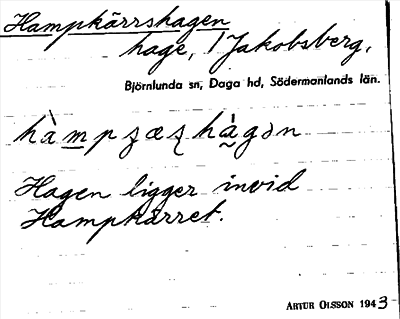 Hampkärrshagen
hage, / Jakobsberg,
Björnlunda sn, Daga hd, Södermanlands län.
Hagen ligger invid
Hampkärret.
ARTUR OLSSON 1943